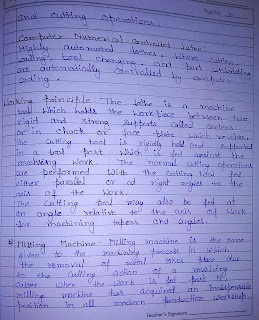 and cutting operations.
Computer Numerical Controlled Lathe:
Highly automated lathes, where cutting,
loading, tool changing, and part unloading
are automatically controlled by computer
coding.
Working principle - The lathe is a machine
tool which holds the workpiece between two
rigid and strong supports called centers
or in chuck or face plate which revolves.
The cutting tool is rigidly held and supported
in a tool post which is fed against the
revolving work. The normal cutting operations
are performed with the cutting tool fed
either parallel or at right angles to the
axis of the work.
The cutting tool may also be fed at
an angle relative to the axis of work
for machining tapers and angles.
Milling Machine - Milling machine is the name
given to the machining process in which
the removal of metal takes place due
to the cutting action of a revolving
cutter when the work is fed past it.
milling machine has acquired an indispensable
position in all modern production workshop.
Teacher's Signature